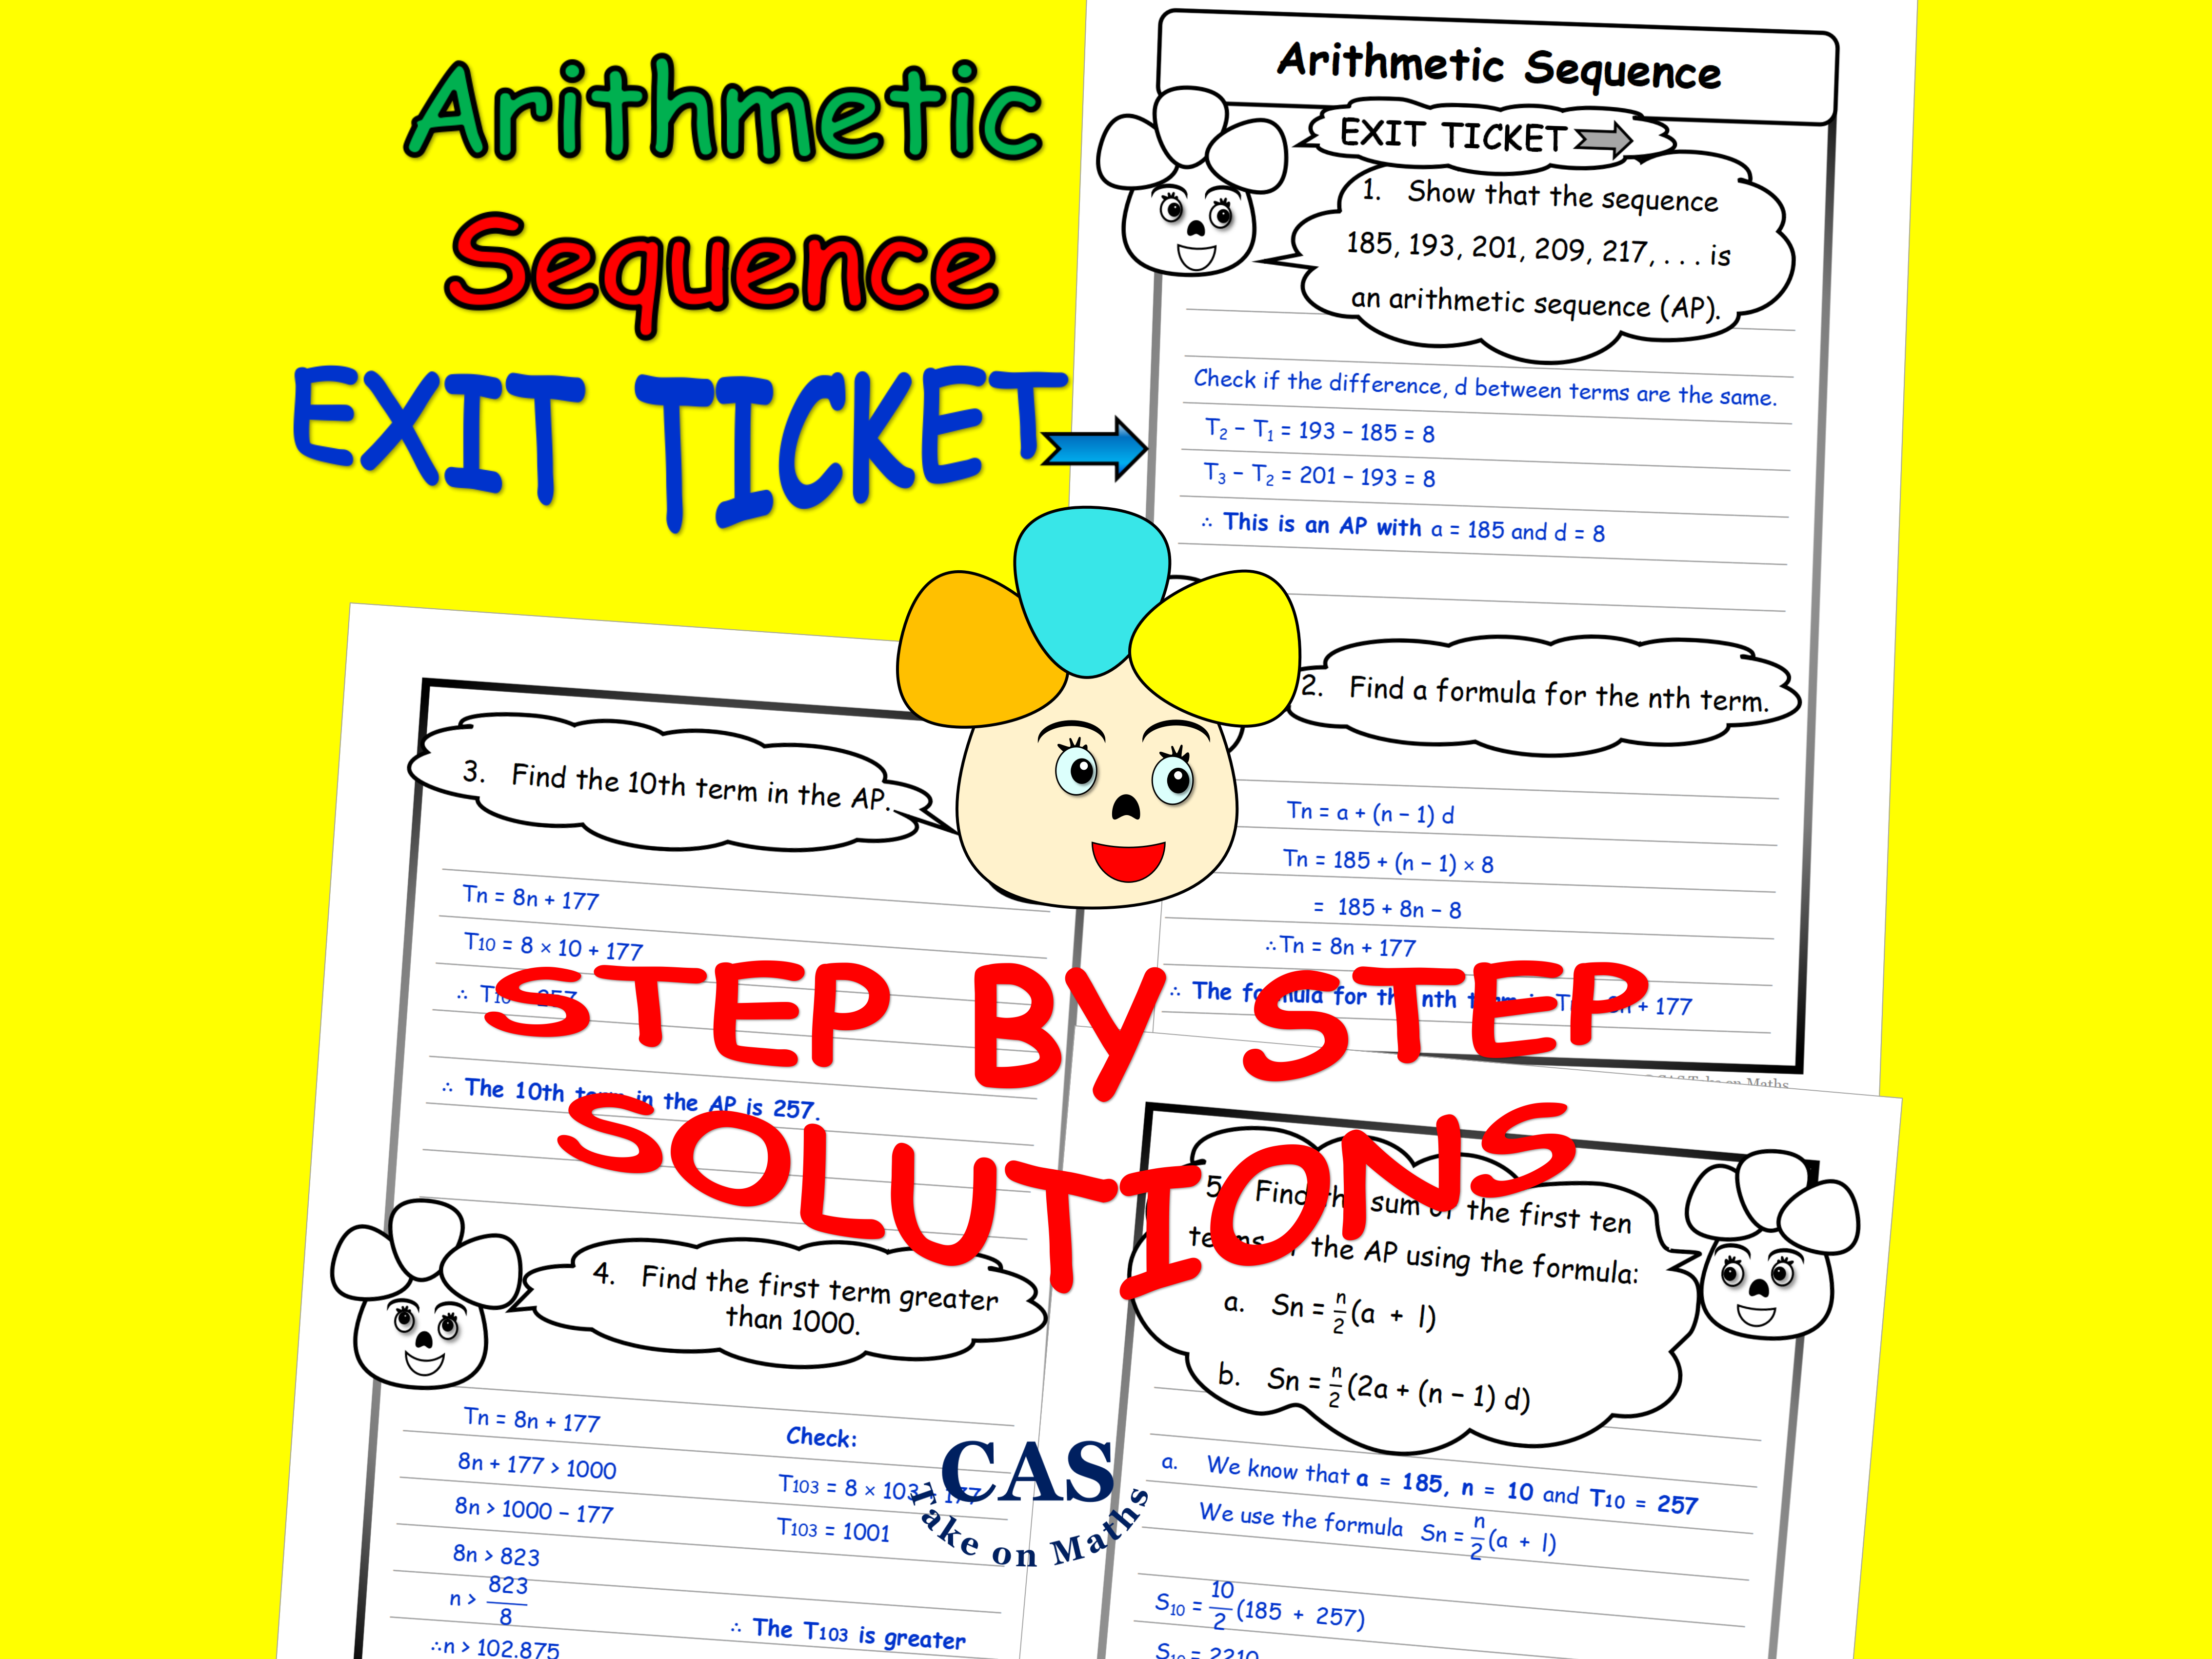 Arithmetic
Sequence
EXIT TICKET
Arithmetic Sequence
EXIT TICKET
1. Show that the sequence
185, 193, 201, 209, 217, . . . is
an arithmetic sequence (AP).
Check if the difference, d between terms are the same.
T₂ – T₁ = 193 – 185 = 8
T₃ – T₂ = 201 – 193 = 8
∴ This is an AP with a = 185 and d = 8
2. Find a formula for the nth term.
Tn = a + (n – 1) d
Tn = 185 + (n – 1) × 8
= 185 + 8n – 8
∴Tn = 8n + 177
∴ The formula for the nth term is Tn = 8n + 177
3. Find the 10th term in the AP.
Tn = 8n + 177
T10 = 8 × 10 + 177
∴ T10 = 257
∴ The 10th term in the AP is 257.
STEP BY STEP
SOLUTIONS
4. Find the first term greater
than 1000.
Tn = 8n + 177
8n + 177 > 1000
8n > 1000 – 177
8n > 823
n > 823/8
∴n > 102.875
Check:
T103 = 8 × 103 + 177
T103 = 1001
∴ The T103 is greater
5. Find the sum of the first ten
terms of the AP using the formula:
a. Sn = n/2 (a + l)
b. Sn = n/2 (2a + (n – 1) d)
a. We know that a = 185, n = 10 and T10 = 257
We use the formula Sn = n/2 (a + l)
S₁₀ = 10/2 (185 + 257)
S₁₀ = 2210
CAS
Take on Maths